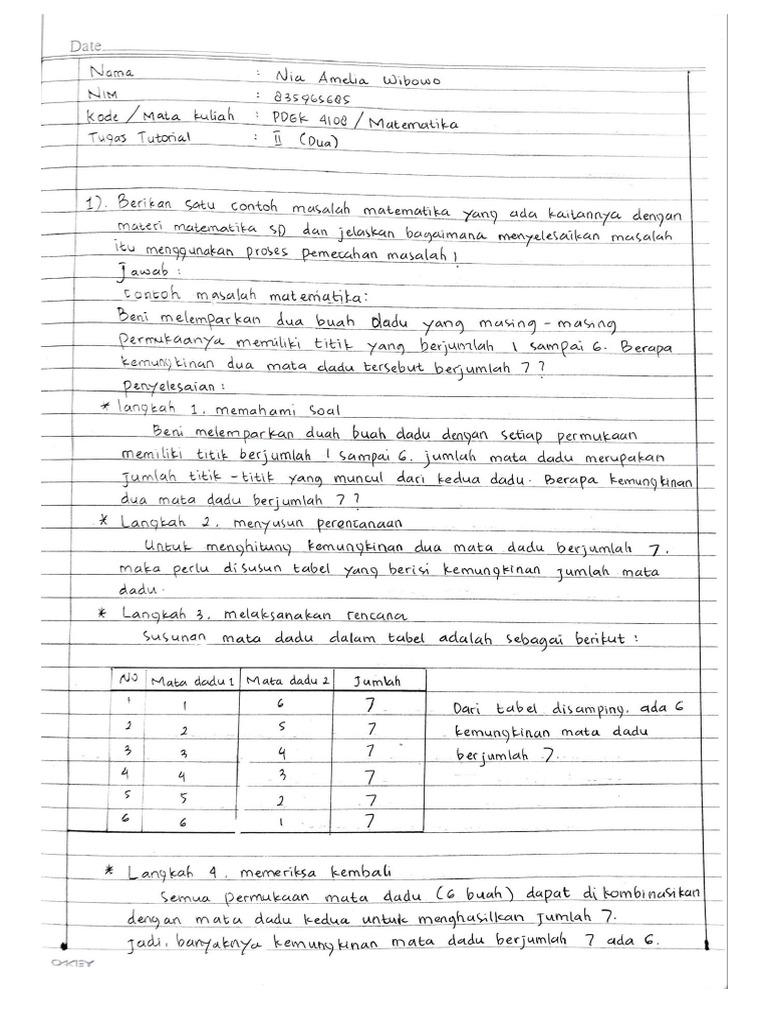 Date
Nama : Nia Amelia Wibowo
NIM : 835965685
Kode / Mata kuliah : PDGK 4108 / Matematika
Tugas Tutorial : II (Dua)
1). Berikan satu contoh masalah matematika yang ada kaitannya dengan
materi matematika SD dan jelaskan bagaimana menyelesaikan masalah
itu menggunakan proses pemecahan masalah!
Jawab :
Contoh masalah matematika:
Beni melemparkan dua buah dadu yang masing-masing
permukaanya memiliki titik yang berjumlah 1 sampai 6. Berapa
kemungkinan dua mata dadu tersebut berjumlah 7?
Penyelesaian :
* langkah 1, memahami soal
Beni melemparkan duah buah dadu dengan setiap permukaan
memiliki titik berjumlah 1 sampai 6. jumlah mata dadu merupakan
jumlah titik-titik yang muncul dari kedua dadu. Berapa kemungkinan
dua mata dadu berjumlah 7?
* Langkah 2, menyusun perencanaan
Untuk menghitung kemungkinan dua mata dadu berjumlah 7,
maka perlu disusun tabel yang berisi kemungkinan jumlah mata
dadu.
* Langkah 3, melaksanakan rencana
Susunan mata dadu dalam tabel adalah sebagai berikut :
No Mata dadu 1 Mata dadu 2 Jumlah
1 1 6 7
2 2 5 7
3 3 4 7
4 4 3 7
5 5 2 7
6 6 1 7
Dari tabel disamping, ada 6
kemungkinan mata dadu
berjumlah 7.
* Langkah 4, memeriksa kembali
Semua permukaan mata dadu (6 buah) dapat di kombinasikan
dengan mata dadu kedua untuk menghasilkan jumlah 7.
Jadi, banyaknya kemungkinan mata dadu berjumlah 7 ada 6.
OKEY